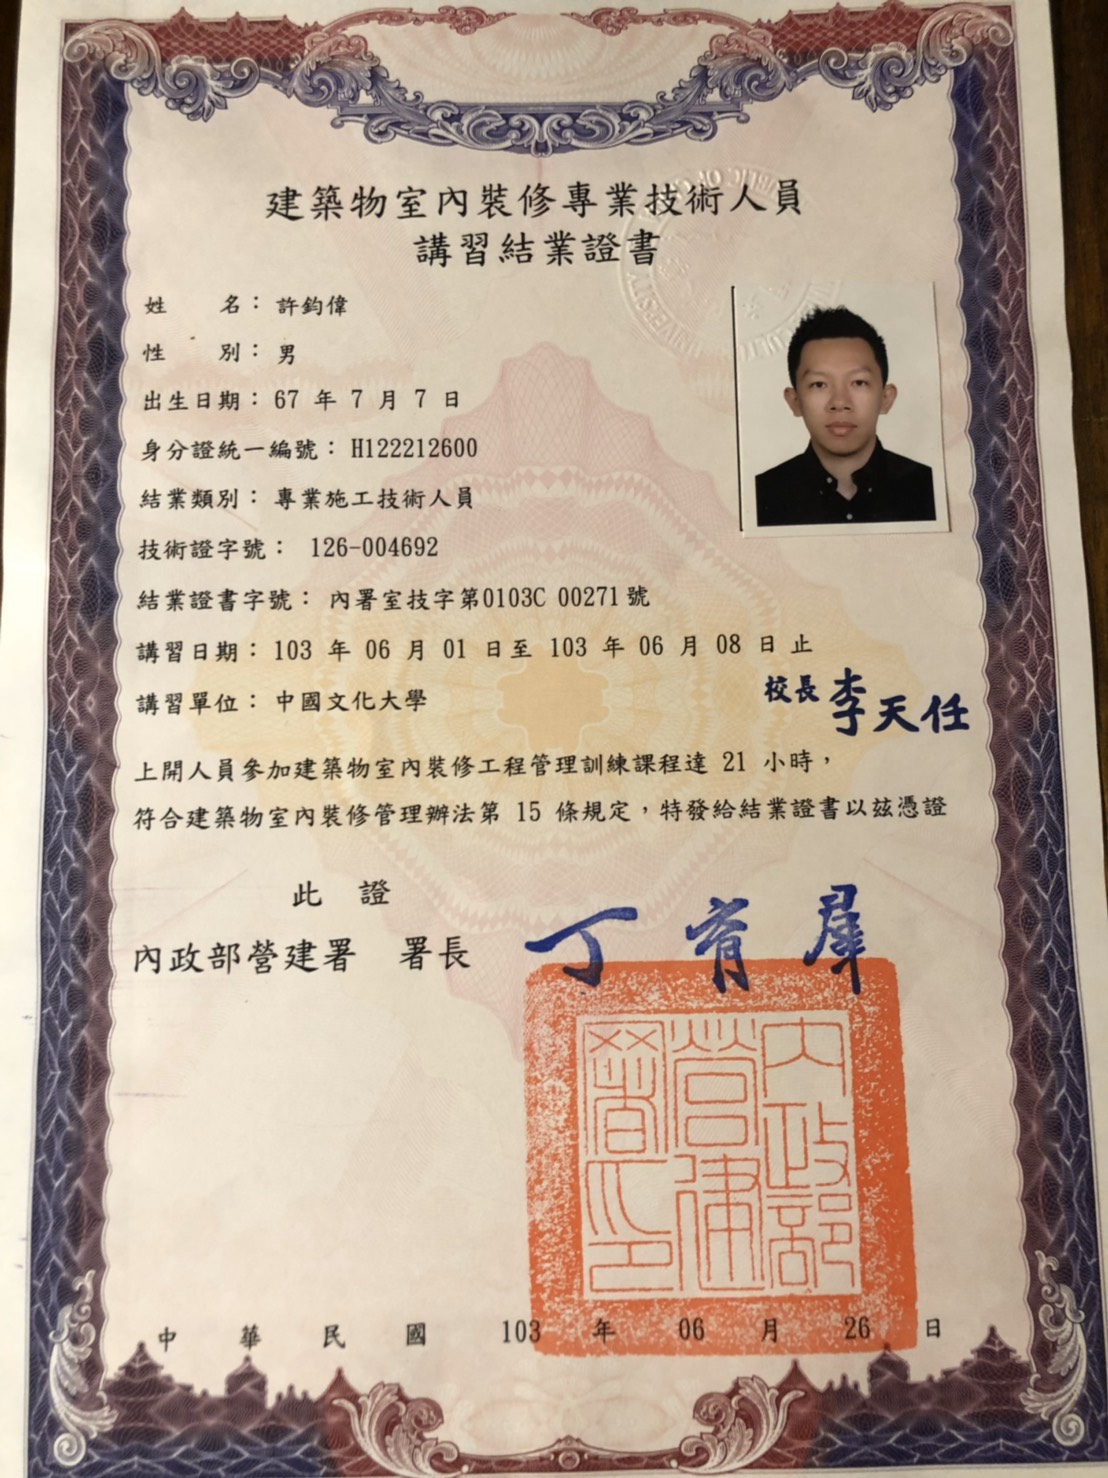 建築物室內裝修專業技術人員
講習結業證書
姓 名：許鈞偉
性 別：男
出生日期：67 年 7 月 7 日
身分證統一編號：H122212600
結業類別：專業施工技術人員
技術證字號： 126-004692
結業證書字號：內署室技字第0103C 00271號
講習日期：103 年 06 月 01 日至 103 年 06 月 08 日止
講習單位：中國文化大學
校長 李天任
上開人員參加建築物室內裝修工程管理訓練課程達 21 小時，
符合建築物室內裝修管理辦法第 15 條規定，特發給結業證書以茲憑證
此 證
內政部營建署 署長 丁育群
內政部
營建
署印
中 華 民 國 103 年 06 月 26 日